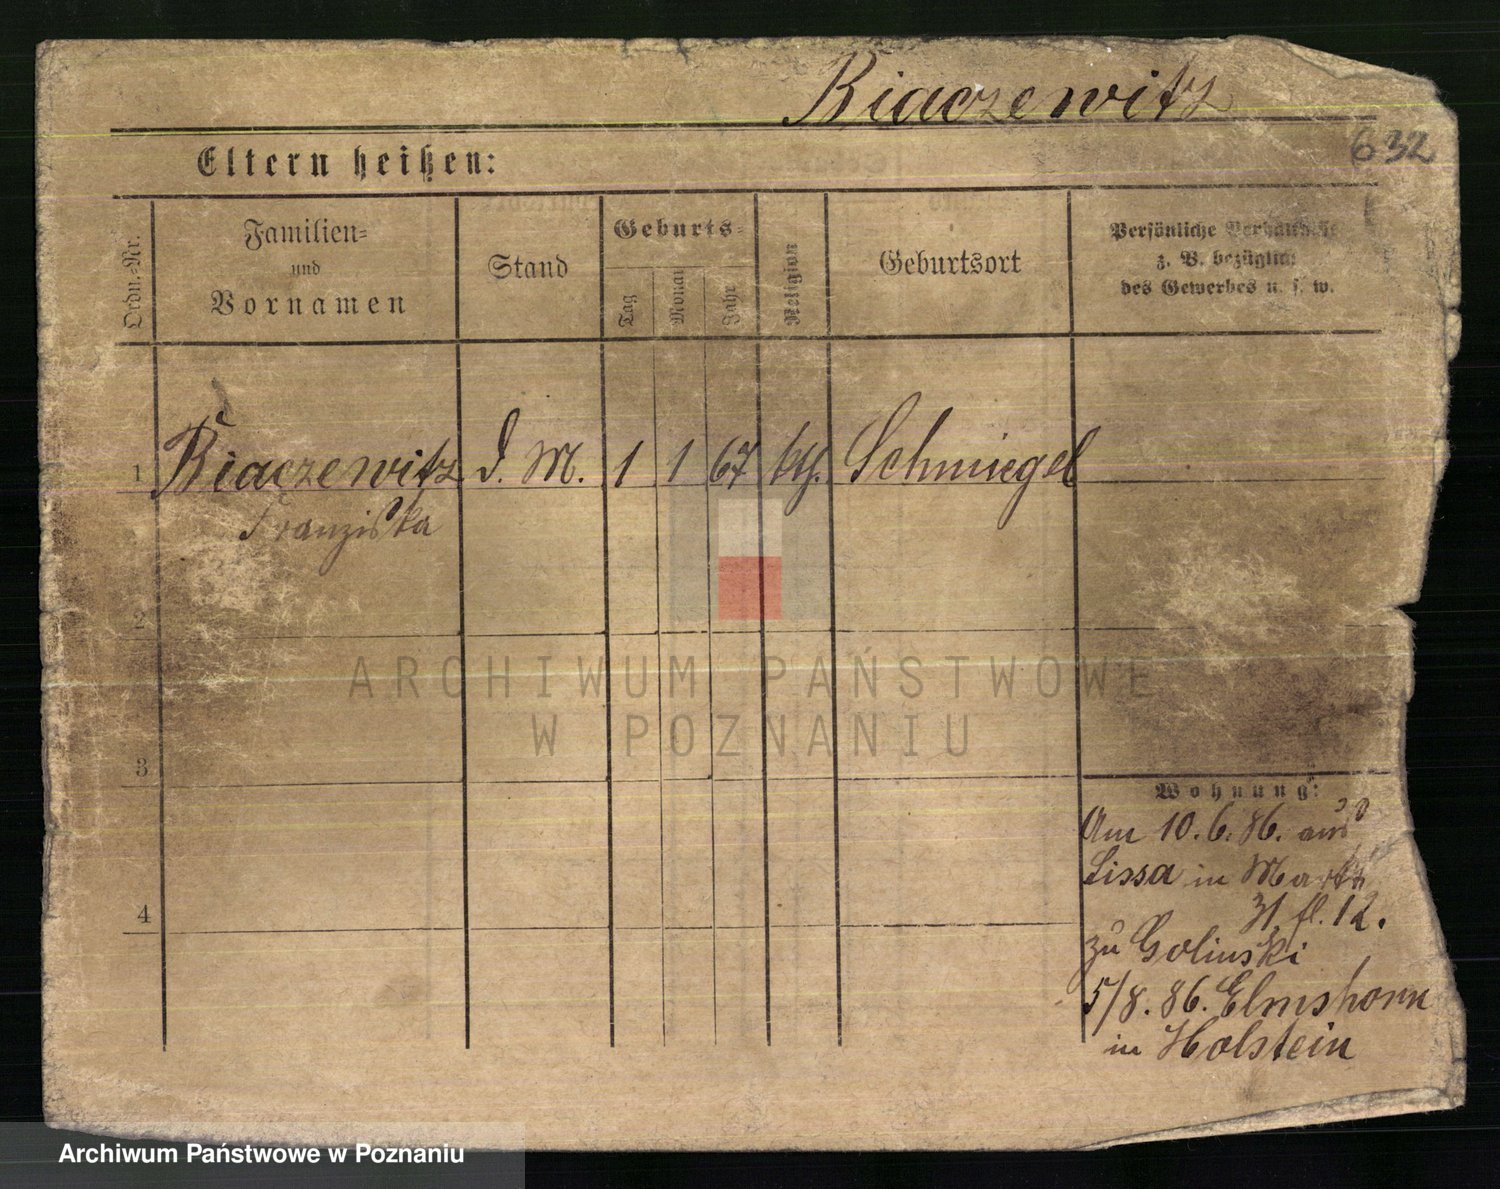 Biaczewitz
632
Eltern heißen:
Ordn.-Nr.
Familien-
und
Vornamen
Stand
Geburts-
Tag
Monat
Jahr
Religion
Geburtsort
Persönliche Verhältnisse
z. B. bezüglich
des Gewerbes u. s. w.
1 Biaczewitz D. M. 1 1 67 kth. Schmiegel
Franziska
2
3
4
Wohnung:
Am 10.6.86. aus
Lissa in Markt
31 fl. 12.
zu Golinski
5/8. 86. Elmshorn
in Holstein
ARCHIWUM PAŃSTWOWE
W POZNANIU
Archiwum Państwowe w Poznaniu